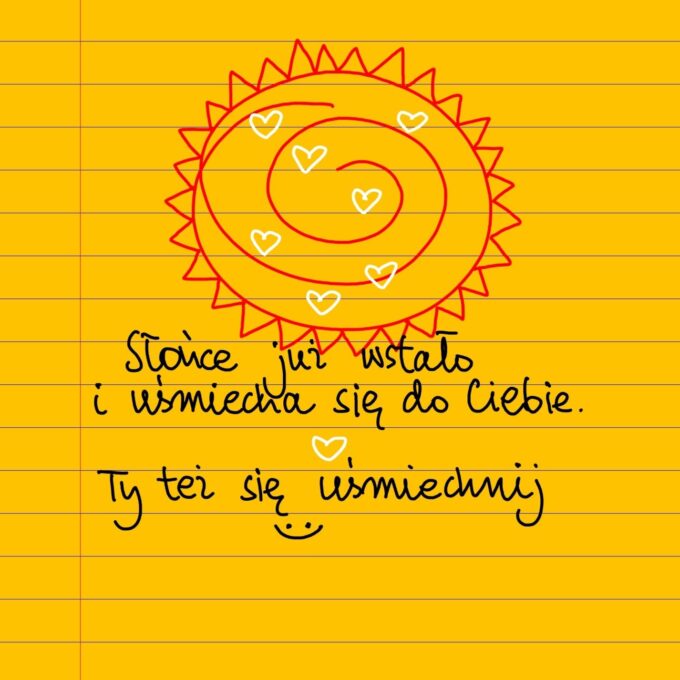 Słońce już wstało
i uśmiecha się do Ciebie.
Ty też się uśmiechnij